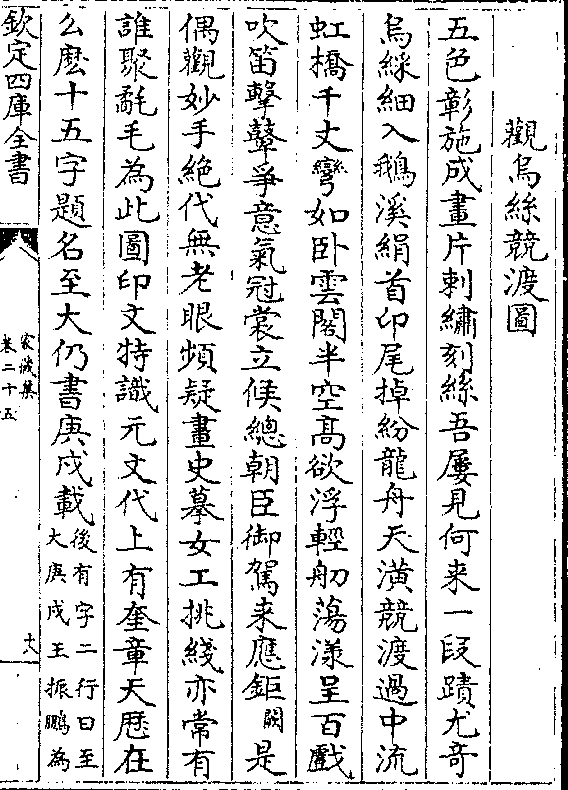 觀烏絲競渡圖
五色彰施成畫片刺繡刻絲吾屢見何来一段蹟尤竒
烏綵細入鵝溪絹首卬尾掉紛龍舟天潢競渡過中流
虹橋千丈彎如卧雲閣半空髙欲浮輕舠蕩漾呈百戲
吹笛擊鼙爭意氣冠裳立候總朝臣御駕来應鉅闕是
偶觀妙手絶代無老眼頻疑畫史摹女工挑綫亦常有
誰聚氄毛為此圖印文特識元文代上有奎章天厯在
么麽十五字題名至大仍書庚戌載後有字二行曰至
大庚戌王振鵬為
欽定四庫全書
家藏集
卷二十五
十八